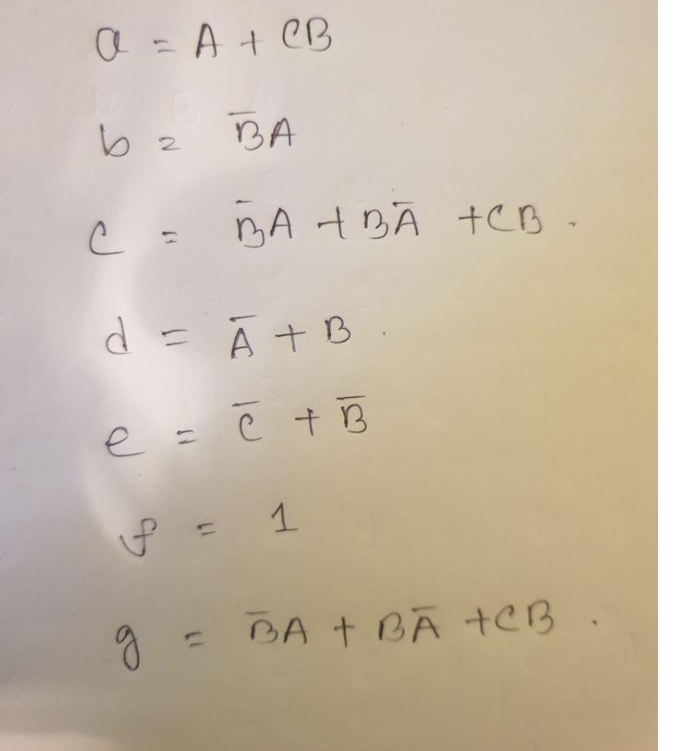 a = A + CB
b = B̅A
c = B̅A + BA̅ + CB .
d = A̅ + B .
e = C̅ + B̅
f = 1
g = B̅A + BA̅ + CB .